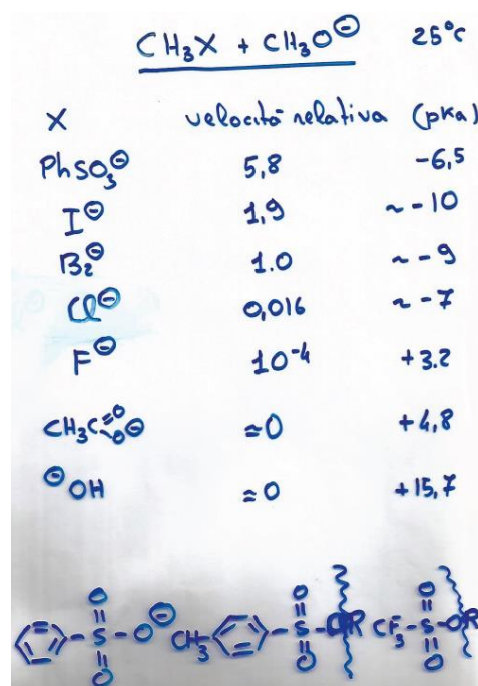 CH₃X + CH₃O⊖ 25°C
X velocità relativa (pka)
PhSO₃⊖ 5,8 -6,5
I⊖ 1,9 ~ -10
Br⊖ 1.0 ~ -9
Cl⊖ 0,016 ~ -7
F⊖ 10⁻⁴ +3.2
CH₃C=O O⊖ ≈0 +4,8
⊖OH ≈0 +15,7
O O O
S-O⊖ CH₃ S-OR CF₃-S-OR
O O O